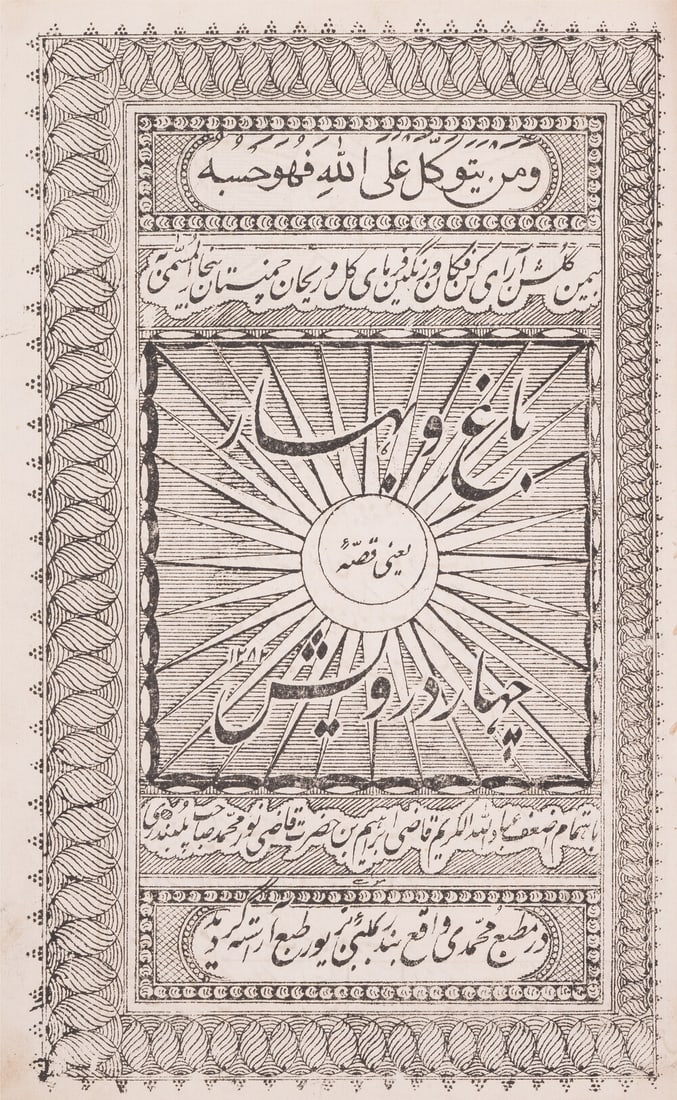 وَمَن يَتَوَكَّل عَلَى اللهِ فَهُوَ حَسبُهُ
بیمن گلشن آرای کن فکان و رنگین فرمای گل و ریحان چمنستان بیخار المسمی به
باغ و بهار
یعنی قصّهٔ
چهار درویش
۱۲۸۴
باهتمام اضعف عباد الله الکریم قاضی ابراهیم بن حضرت قاضی نور محمد صاحب پلبندری
در مطبع محمّدی واقع بندر بمبئی بزیور طبع آراسته گردید